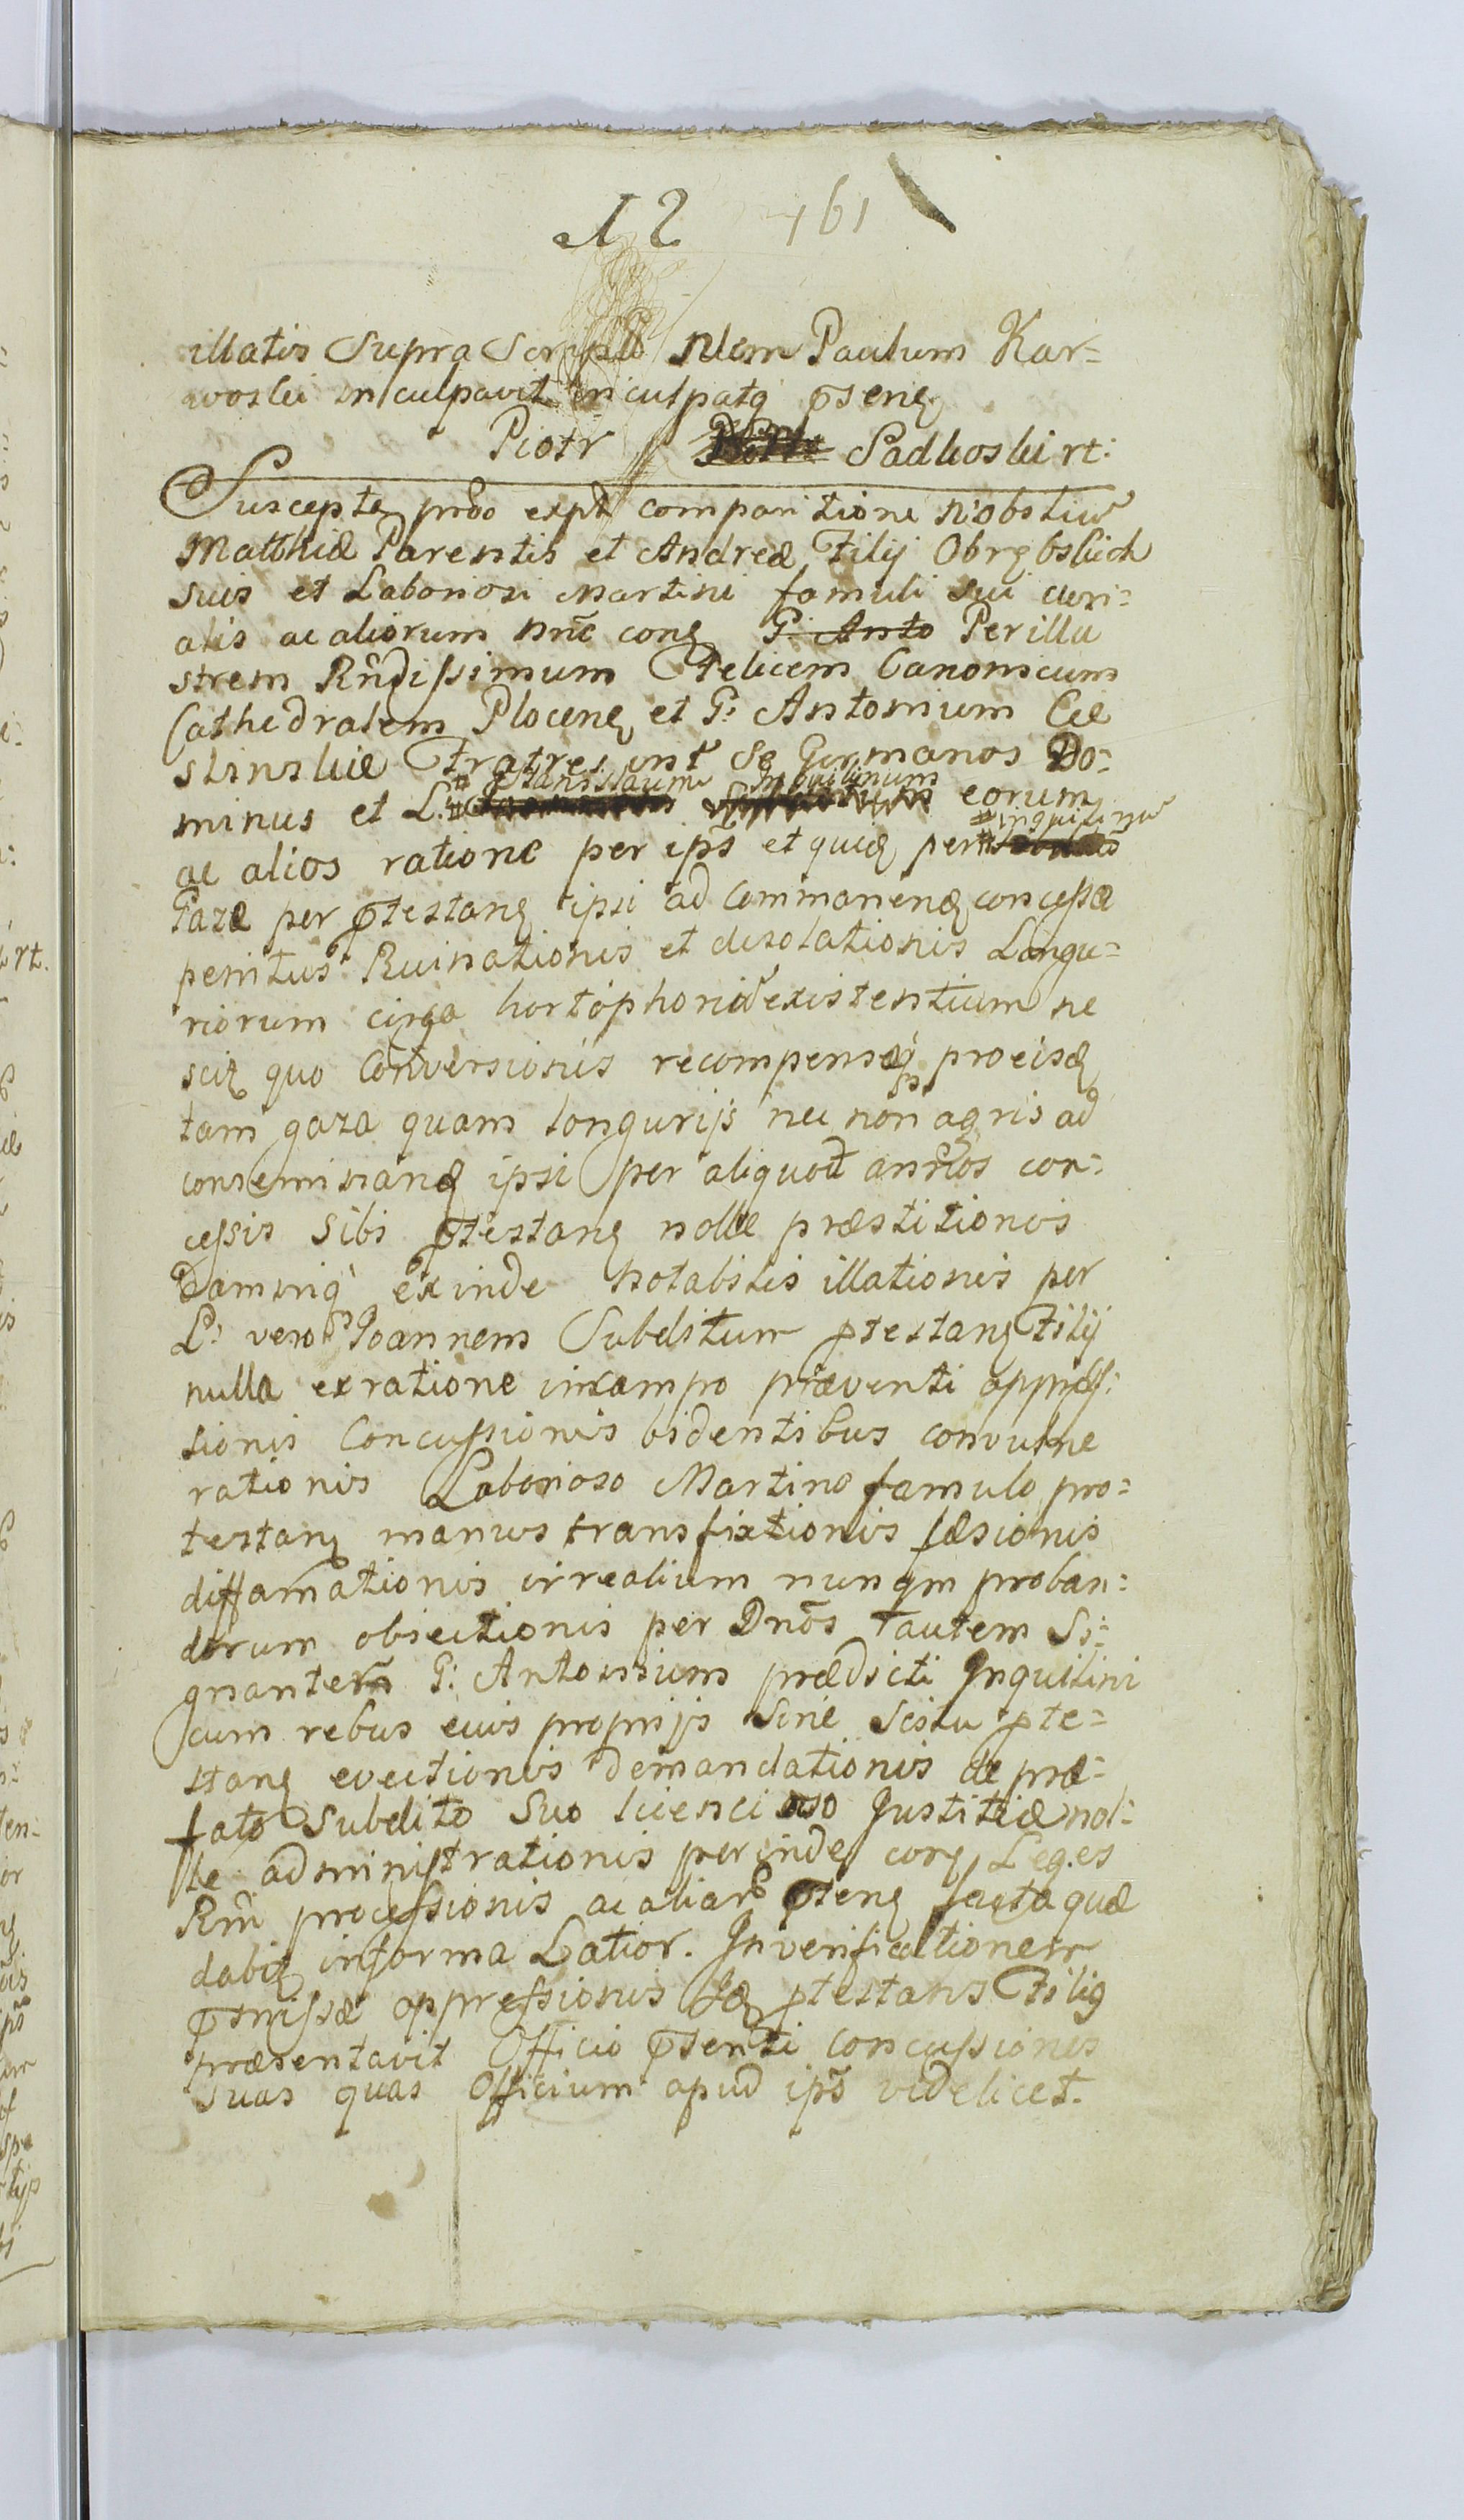 12 161
illatis Supra Script Nlem Paulum Kar=
woski inculpavit inculpatq p̄senę
Piotr Sadkoski rt:
Susceptę prdo expt comparitione Nobiliu͂
Matthiæ Parentis et Andreæ Filij Obrębskich
suis et Laboriosi Martini famuli sui curi=
alis ac aliorum nnc conę G. Anto Perillu
strem Rndissimum Felicem Canonicum
Cathedralem Plocenę et G: Antonium Cie
slinskie Fratres int Se Germanos Do=
minus et L: Stanislaum Inquilinum eorum
ac alios ratione per ips et quię per inquilinu͂
Gazæ per p̄testanę ipsi ad Commanenę concessæ
penitus Ruinationis et desolationis Longu=
riorum circa hortos existentium ne
scię quo Conversionis recompensæq proeisę
tam gaza quam longurijs nec non agris ad
conseminanę ipsi per aliquot annos con=
cessis Sibi p̄testanę nolle præstitionis
Damniq exinde notabilis illationis per
L: vero Joannem Subditum ptestanę Filij
nulla exratione incampo præventi oppres=
sionis Concussionis bidentibus convulne
rationis Laborioso Martino famulo pro=
testanę manus transfixtionis læsionis
diffamationis irrealium nunqm proban=
dorum obiectionis per Dnos tautem Si=
gnanter G: Antonium prædicti Inquilini
cum rebus eius proprijs Sine Scitu pte=
stanę evectionis demandationis de præ=
fato Subdito Suo licencioso Justitiæ nol=
le administrationis perindę corę Leges
Rni processionis ac aliar p̄tenę facta quæ
dabię informa Latior. Inverificationem
p̄missæ oppressionis Idę ptestans Filię
præsentavit Officio p̄senti Concussiones
suas quas Officium apud ips videlicet.